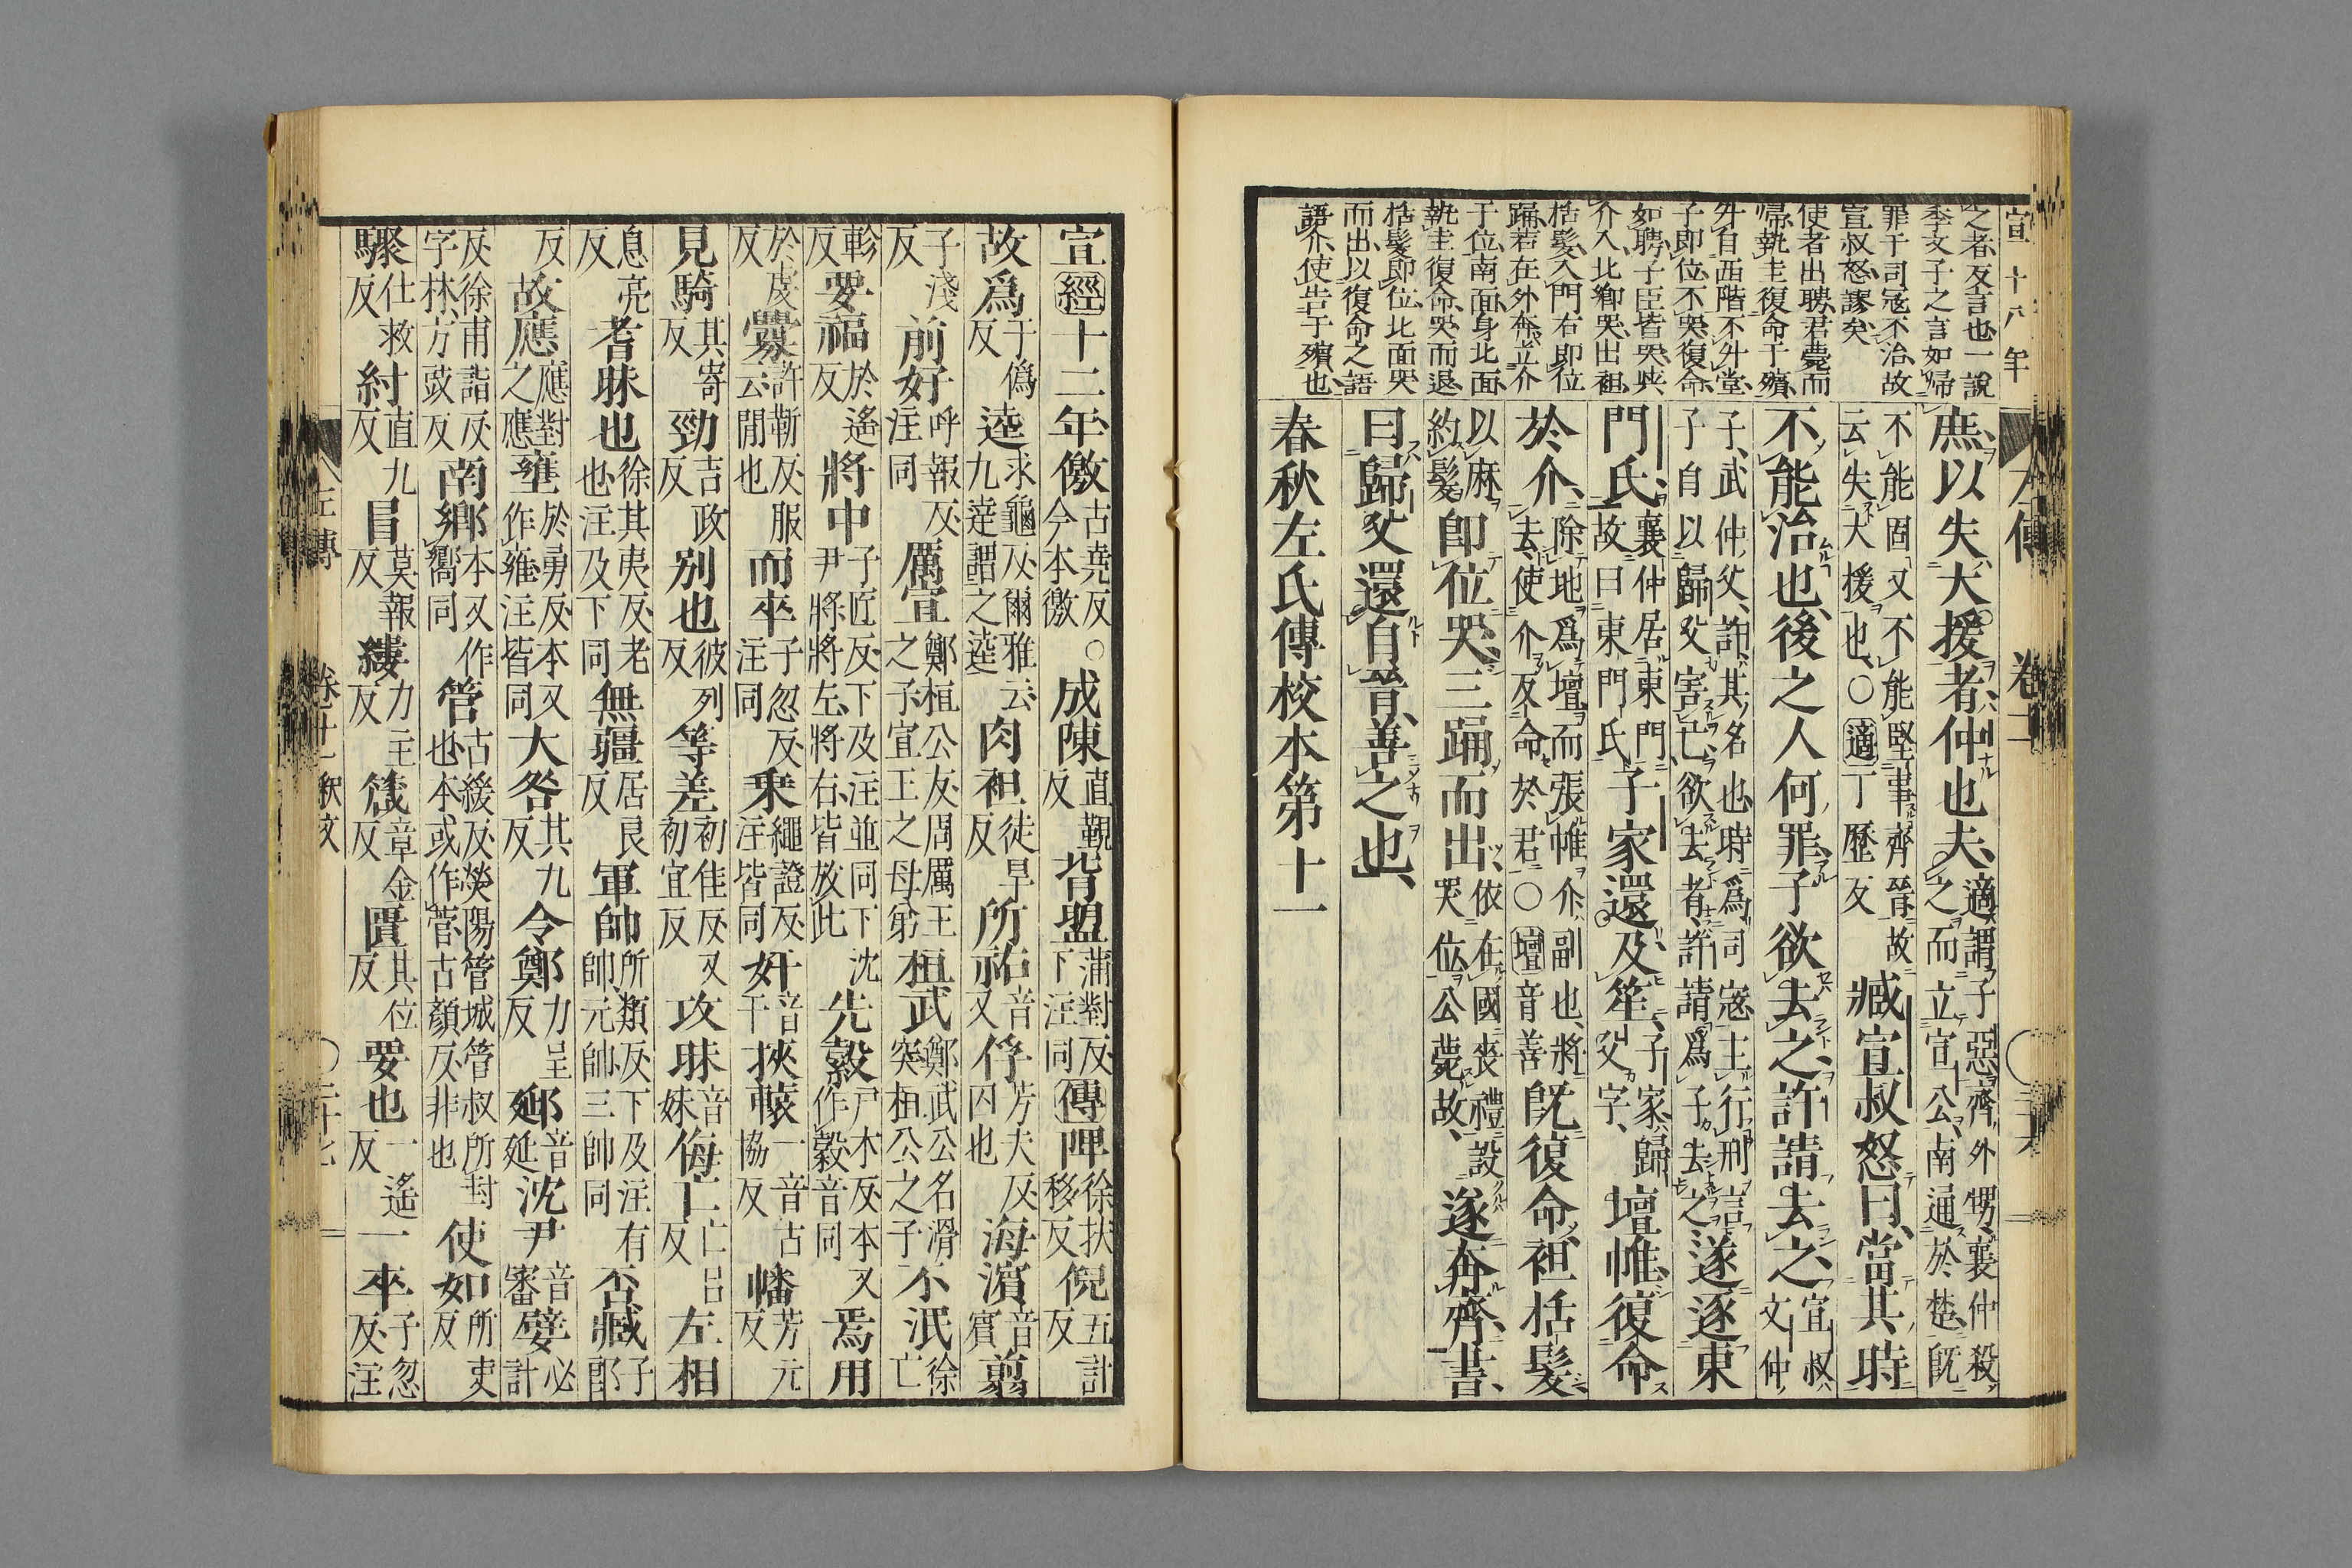 宣十八年
之者反言也一說
季文子之言如歸
罪于司寇不治故
宣叔怒謬矣
使者出聘君薨而
歸執圭復命于殯
升自西階不升堂
子即位不哭復命
如聘子臣皆哭與
介入北鄉哭出袒
括髮入門右即位
踊若在外奔立介
于位南面身北面
執圭復命哭而退
括髮即位北面哭
而出以復命之語
語介使告于殯也
庶以失大援者仲也夫適謂子惡齊外甥襄仲殺
之而立宣公南通於楚既
不能固又不能堅事齊晉故
云失大援也〇適丁歷反
臧宣叔怒曰當其時
不能治也後之人何罪子欲去之許請去之宣叔
文仲
子武仲父許其名也時爲司寇主行刑言
子自以歸父害己欲去者許請爲子去之
遂逐東
門氏襄仲居東門
故曰東門氏
子家還及笙子家歸
父字
壇帷復命
於介除地爲壇而張帷介副也將
去使介反命於君〇壇音善
既復命袒括髮
以麻
約髮
即位哭三踊而出依在國喪禮設
哭位公薨故
遂奔齊書
曰歸父還自晉善之也
春秋左氏傳校本第十一
宣經十二年儌古堯反
今本徼
〇成陳直覲
反
背盟蒲對反
下注同
傳陴徐扶
移反
倪五計
反
故爲于僞
反
逵求龜反爾雅云
九達謂之逵
肉袒徒旱
反
所祐音
又
俘芳夫反
囚也
海濱音
賓
翦
子淺
反
前好呼報反
注同
厲宣鄭桓公友周厲王
之子宣王之母弟
桓武鄭武公名滑
突桓公之子
不泯徐
亡
軫
反
要福於遙
反
將中子匠反下及注並同下
尹將將左將右皆放此
沈
先縠尸木反本又
作縠音同
焉用
於虔
反
釁許靳反服
云閒也
而卒子忽反
注同
乘繩證反
注皆同
奸音
干
挾轅一音古
協反
幡芳元
反
見騎其寄
反
勁吉政
反
別也彼列
反
等差初佳反又
初宜反
攻昧音
妹
侮亡亡呂
反
左相
息亮
反
耆昧也徐其夷反老
也注及下同
無疆居艮
反
軍帥所類反下及注有
帥元帥三帥同
否臧子
郎
反
故應應對
之應
壅於勇反本又
作雍注皆同
大咎其九
反
令鄭力呈
反
郔音
延
沈尹音
審
嬖必
計
反徐甫詣反
字林方豉反
南鄉本又作
嚮同
管古緩反滎陽管城管叔所封
也本或作菅古顏反非也
使如所吏
反
驟仕救
反
紂直九
反
冒莫報
反
縷力主
反
箴章金
反
匱其位
反
要也一遙
反
一卒子忽
反注
左傳
卷十一
釈文
〇三十七